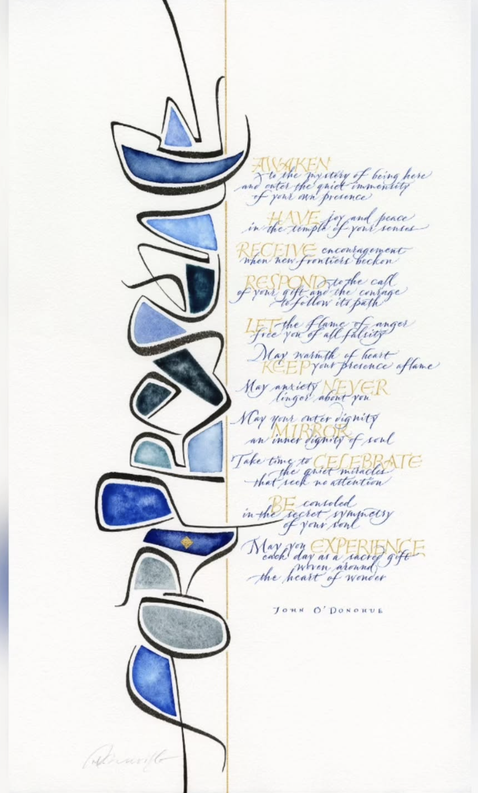 FOR PRESENCE
AWAKEN
to the mystery of being here
and enter the quiet immensity
of your own presence
HAVE joy and peace
in the temple of your senses
RECEIVE encouragement
when new frontiers beckon
RESPOND to the call
of your gift and the courage
to follow its path
LET the flame of anger
free you of all falsity
May warmth of heart
KEEP your presence aflame
May anxiety NEVER
linger about you
May your outer dignity
MIRROR
an inner dignity of soul
Take time to CELEBRATE
the quiet miracles
that seek no attention
BE consoled
in the secret symmetry
of your soul
May you EXPERIENCE
each day as a sacred gift
woven around
the heart of wonder
JOHN O'DONOHUE